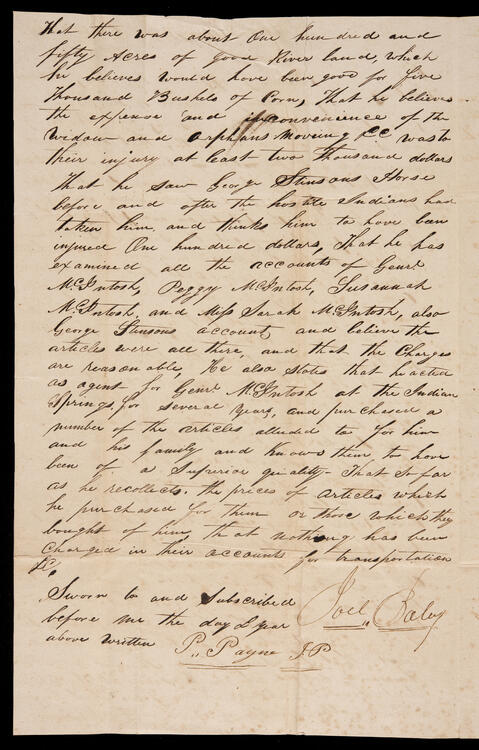 that there was about One hundred and
fifty Acres of good River land, which
he believes would have been good for five
thousand Bushels of Corn, That he believes
the expense and inconvenience of the
Widow and Orphans Moveing &C was to
their injury at least two thousand dollars
That he saw George Stinsons Horse
before and after the hostile Indians had
taken him, and thinks him to have been
injured One hundred dollars, That he has
examined all the accounts of Genrl
McIntosh, Peggy McIntosh, Susannah
McIntosh, and Miss Sarah McIntosh, also
George Stinsons account, and believe the
articles were all there, and that the Charges
are reasonable, He also states that he acted
as agent for Genrl McIntosh at the Indian
Springs, for several years, and purchased a
number of the articles alluded to for him
and his family and Knows them to have
been of a Superior quality - That so far
as he recollects. the prices of articles which
he purchased for them or those which they
bought of him, that nothing has been
Charged in their accounts for transportation
&C.
Sworn to and Subscribed
before me the day & year
above written
P,, Payne J.P
Joel,, Baley